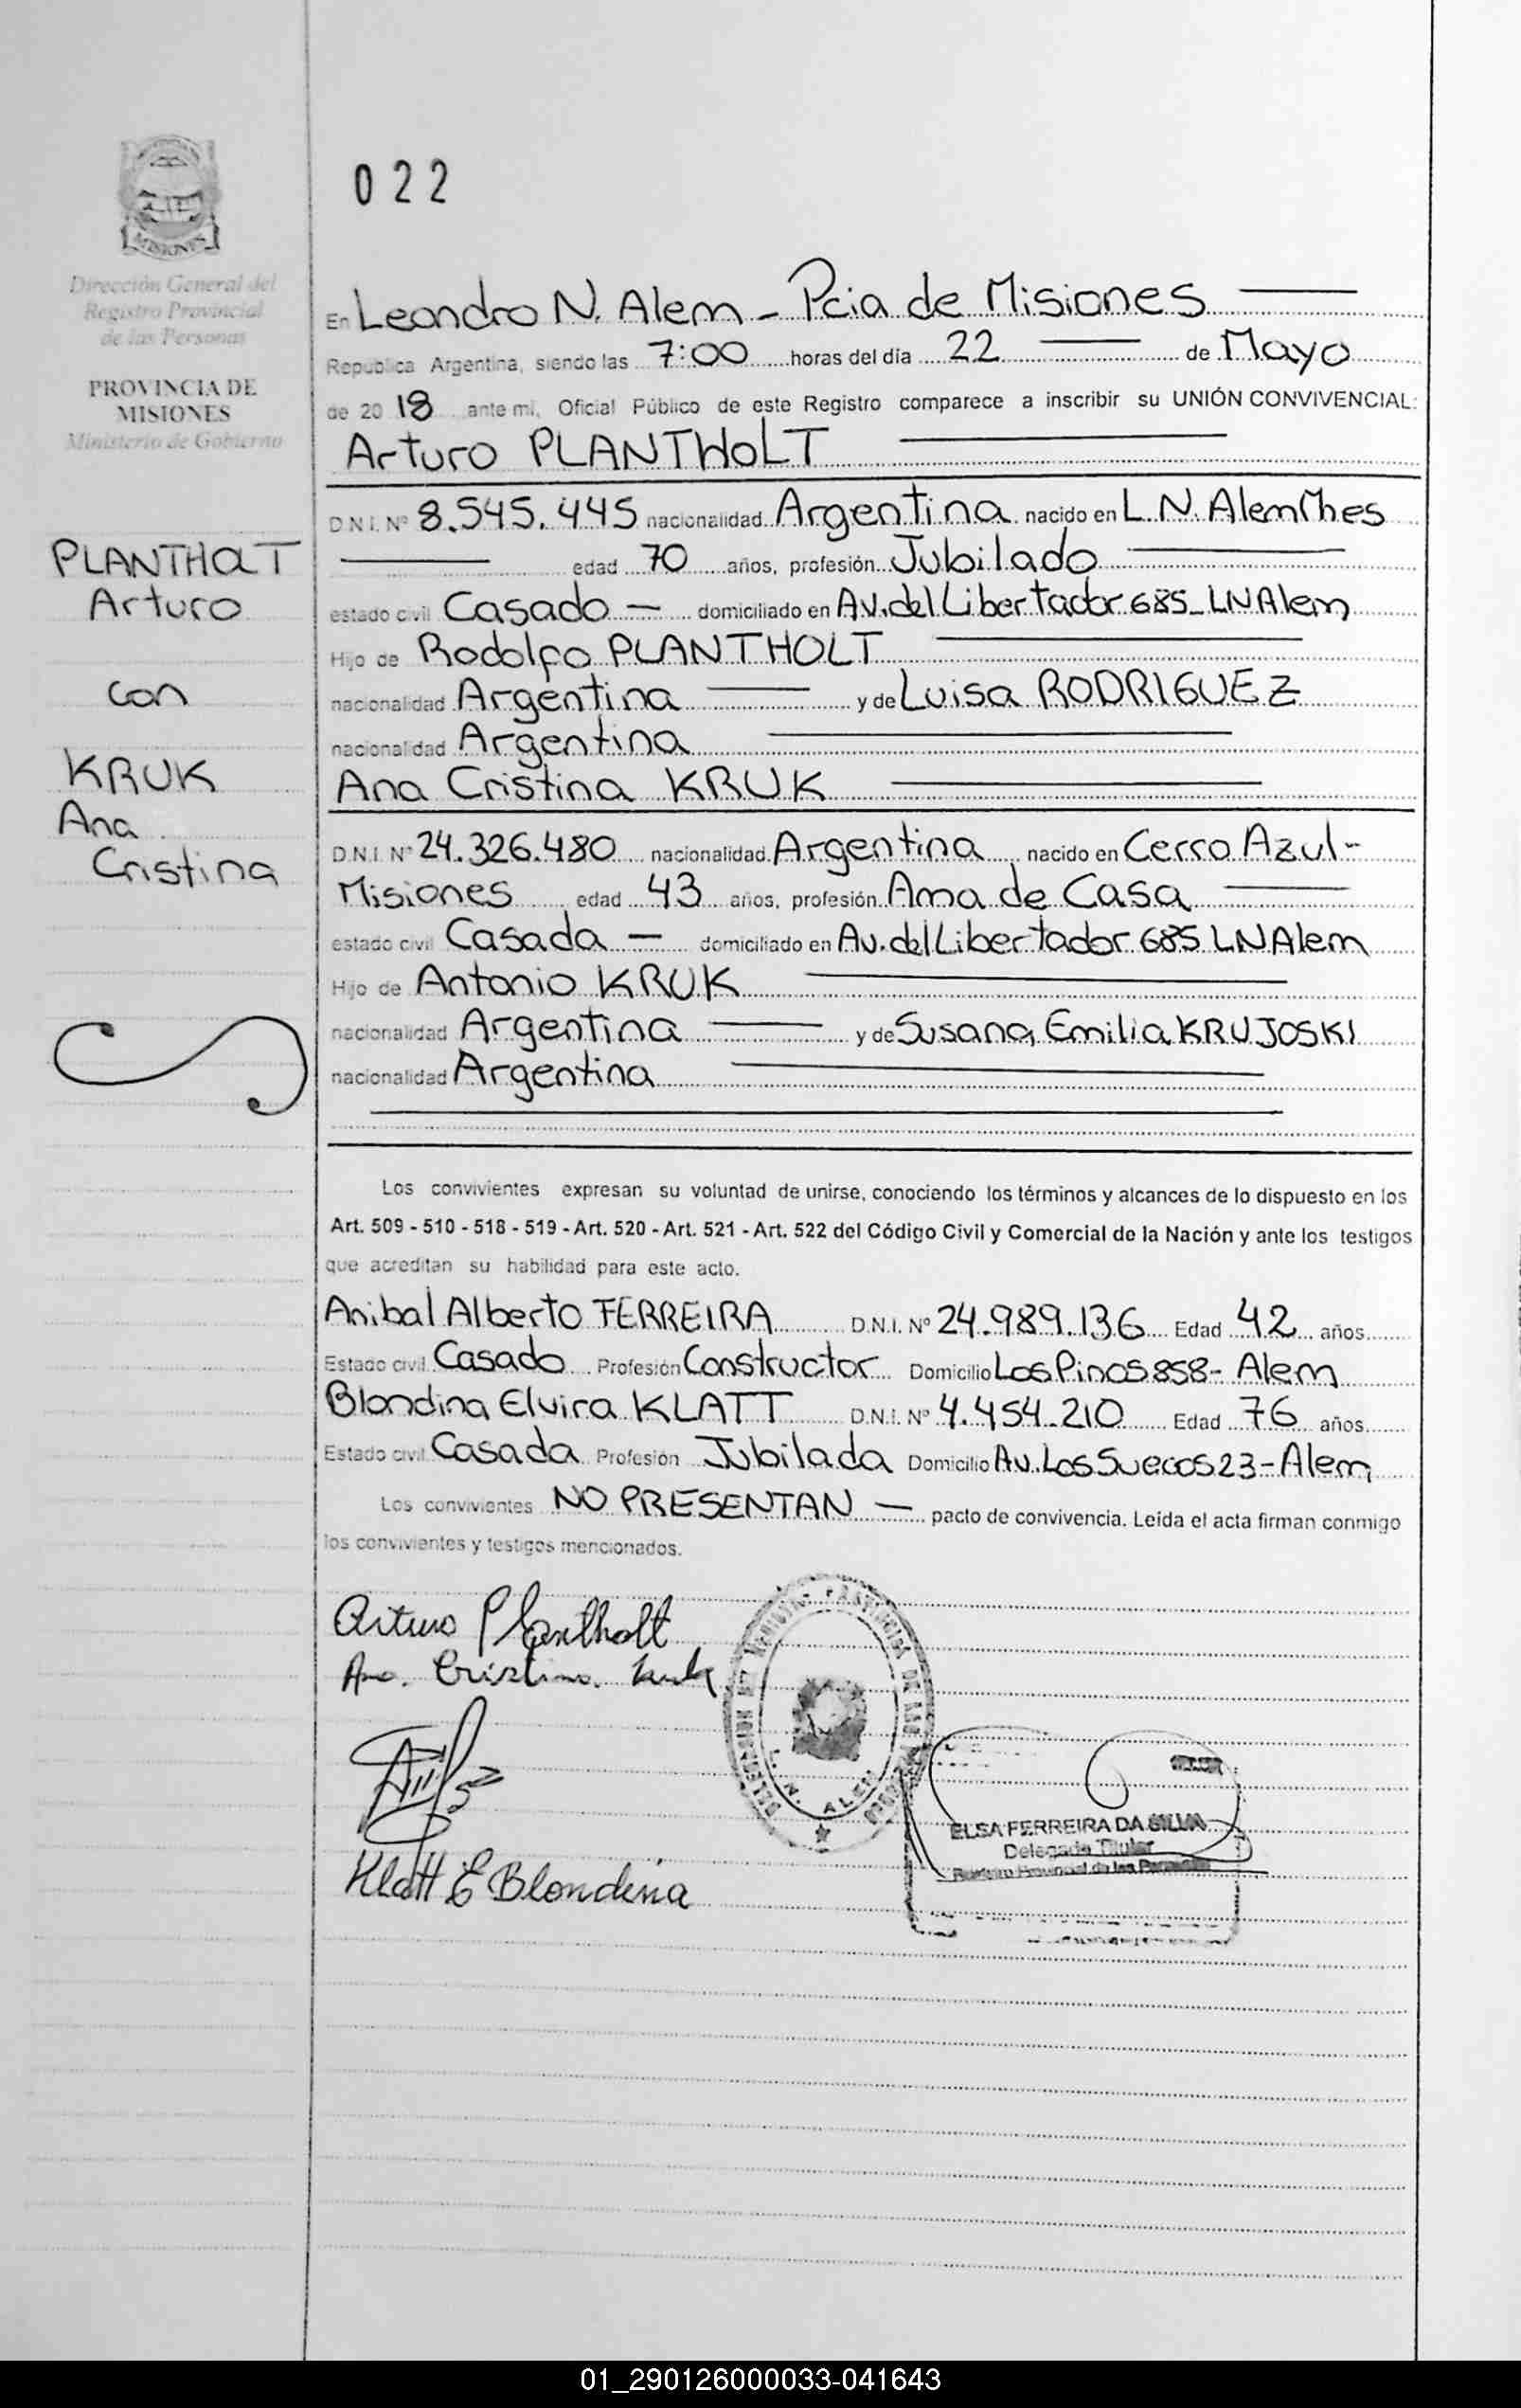 022
Dirección General del
Registro Provincial
de las Personas
PROVINCIA DE
MISIONES
Ministerio de Gobierno
PLANTHOLT
Arturo
con
KRUK
Ana
Cristina
En Leandro N. Alem - Pcia de Misiones
Republica Argentina, siendo las 7:00 horas del día 22 de Mayo
de 20 18 ante mi, Oficial Público de este Registro comparece a inscribir su UNIÓN CONVIVENCIAL:
Arturo PLANTHOLT
D.N.I. Nº 8.545.445 nacionalidad Argentina nacido en L.N. Alem Mnes
edad 70 años, profesión Jubilado
estado civil Casado - domiciliado en Av. del Libertador 685 - LN Alem
Hijo de Rodolfo PLANTHOLT
nacionalidad Argentina y de Luisa RODRIGUEZ
nacionalidad Argentina
Ana Cristina KRUK
D.N.I. Nº 24.326.480 nacionalidad Argentina nacido en Cerro Azul -
Misiones edad 43 años, profesión Ama de Casa
estado civil Casada - domiciliado en Av. del Libertador 685 LN Alem
Hijo de Antonio KRUK
nacionalidad Argentina y de Susana Emilia KRUJOSKI
nacionalidad Argentina
Los convivientes expresan su voluntad de unirse, conociendo los términos y alcances de lo dispuesto en los
Art. 509 - 510 - 518 - 519 - Art. 520 - Art. 521 - Art. 522 del Código Civil y Comercial de la Nación y ante los testigos
que acreditan su habilidad para este acto.
Anibal Alberto FERREIRA D.N.I. Nº 24.989.136 Edad 42 años
Estado civil Casado Profesión Constructor Domicilio Los Pinos 858 - Alem
Blondina Elvira KLATT D.N.I. Nº 4.454.210 Edad 76 años
Estado civil Casada Profesión Jubilada Domicilio Av. Los Suecos 23 - Alem
Los convivientes NO PRESENTAN - pacto de convivencia. Leída el acta firman conmigo
los convivientes y testigos mencionados.
Arturo Plantholt
Ana Cristina Kruk
Klatt E Blondina
L. N. ALEM
ELSA FERREIRA DA SILVA
Delegada Titular
Registro Provincial de las Personas
01_290126000033-041643